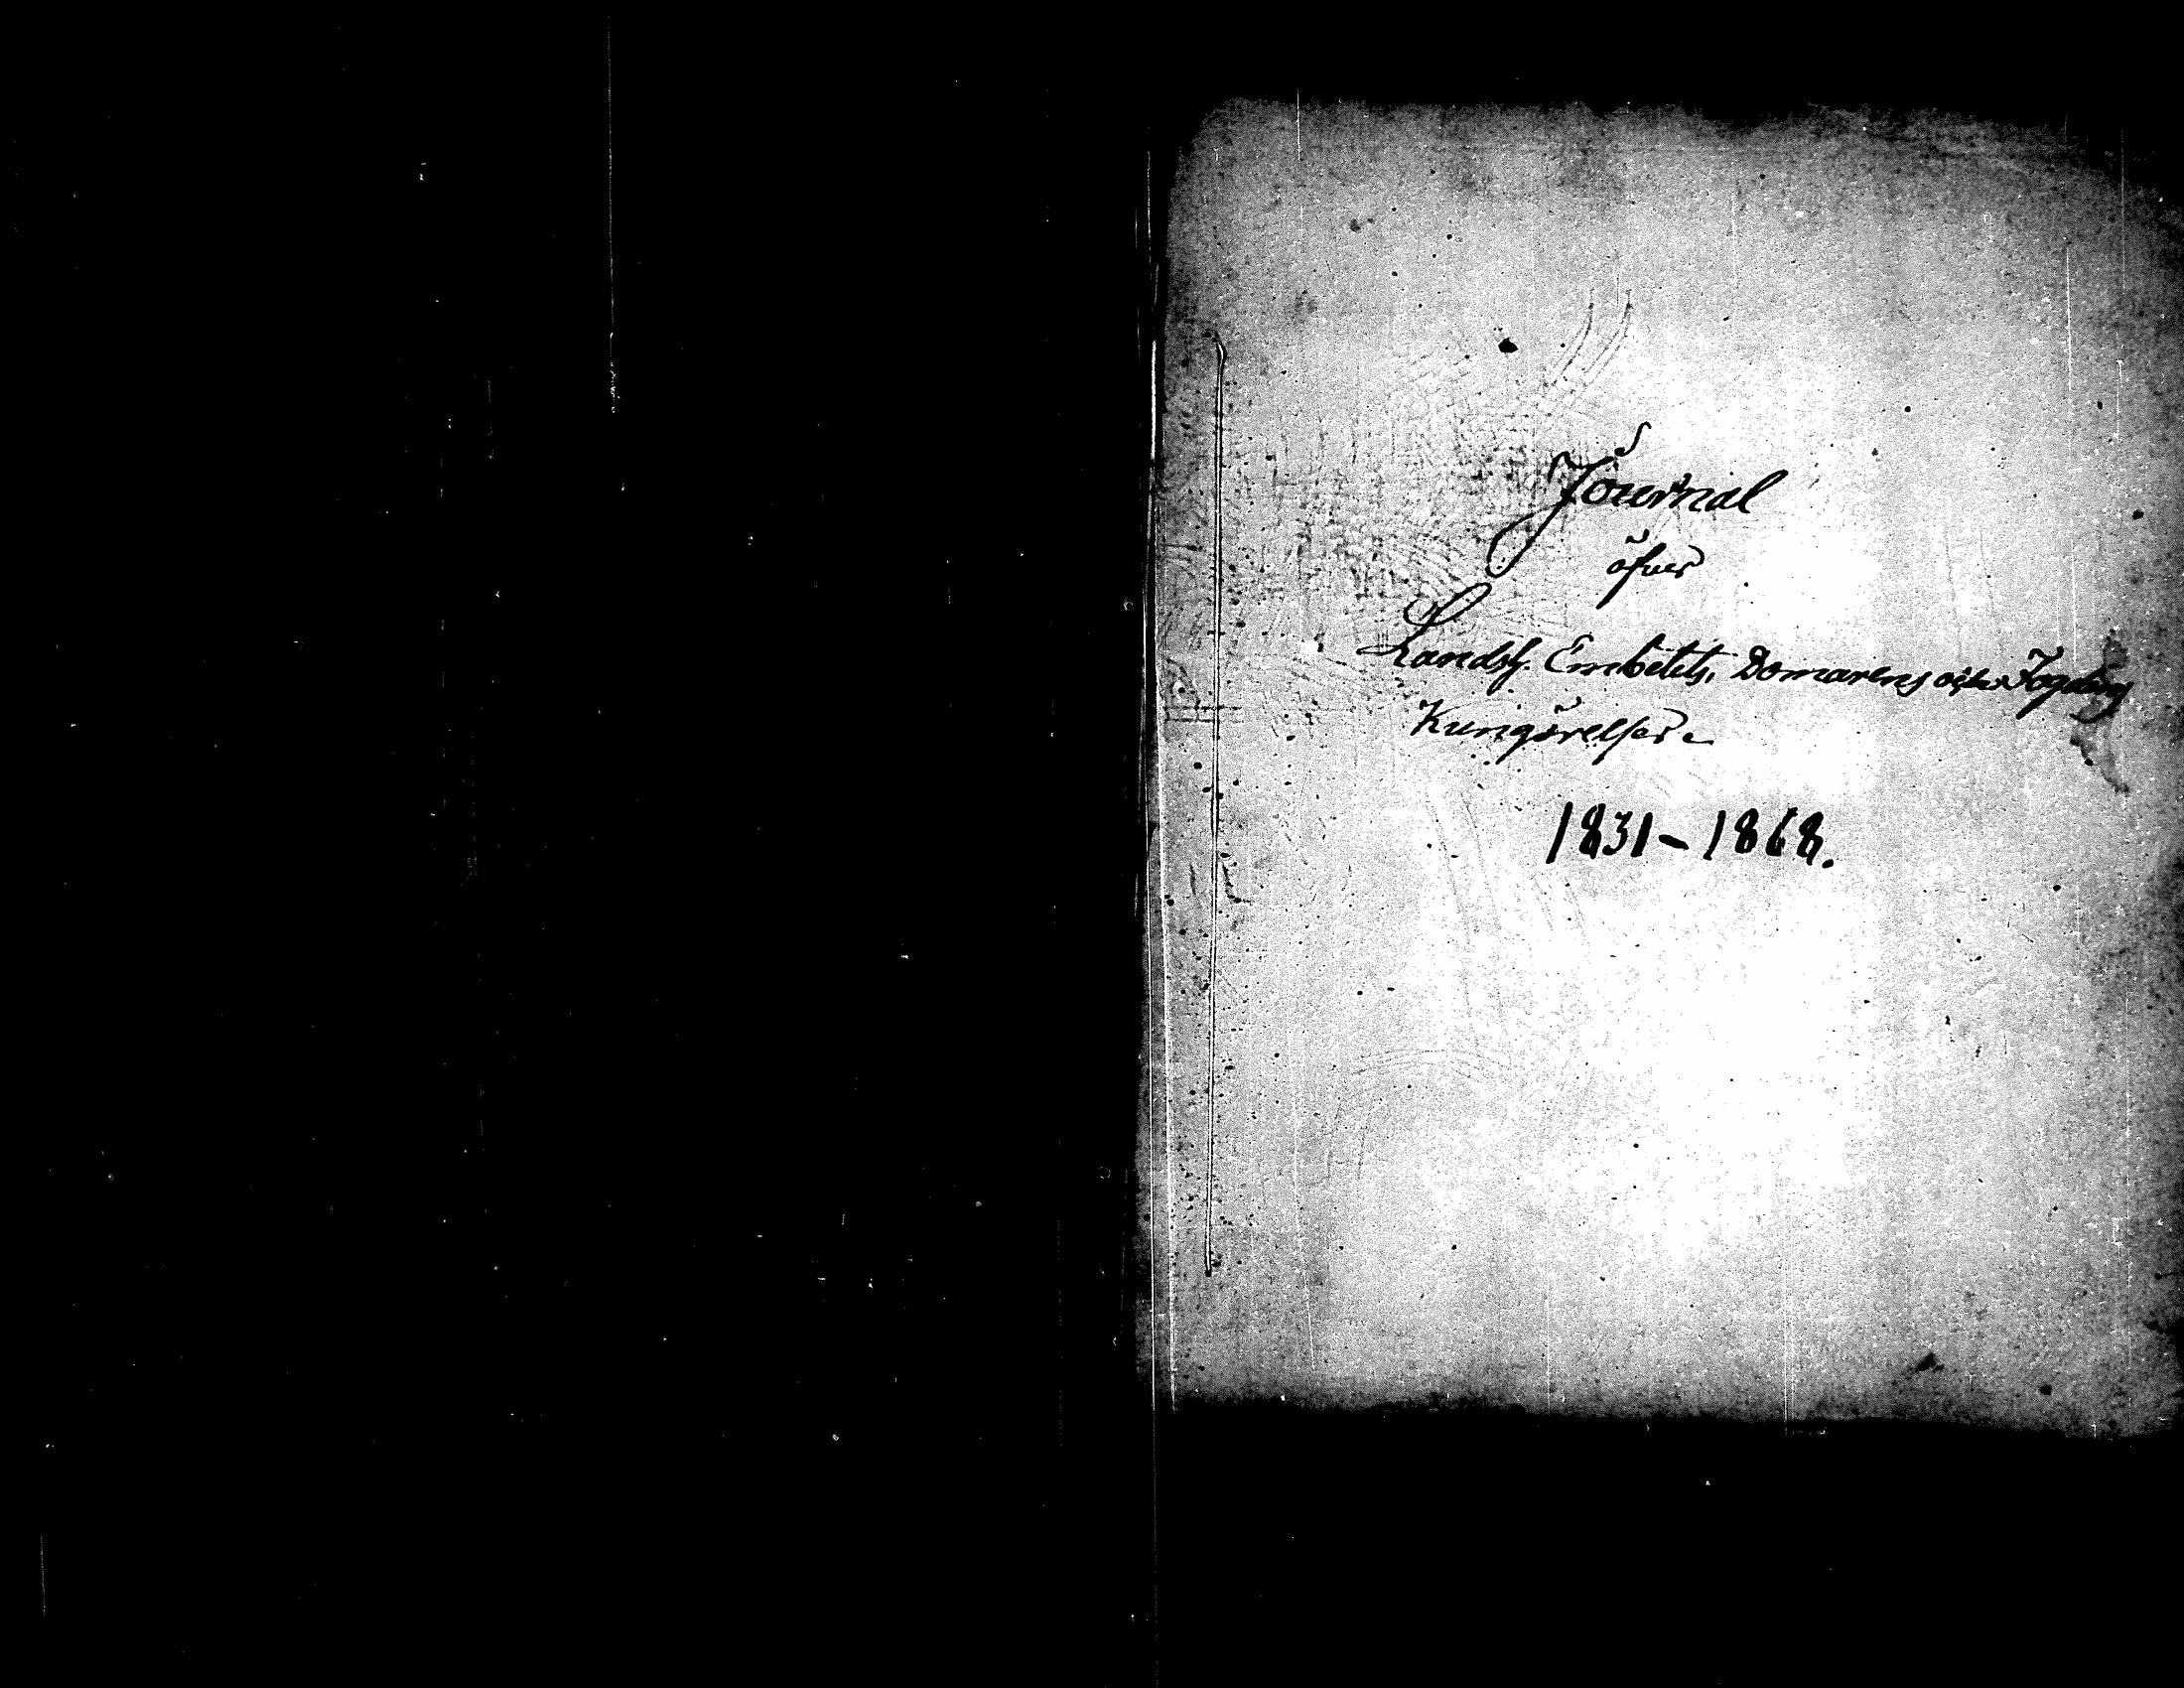 Journal
öfver
Landsh. Embetets, Domarens och Fogdens
Kungörelser.
1831-1868.